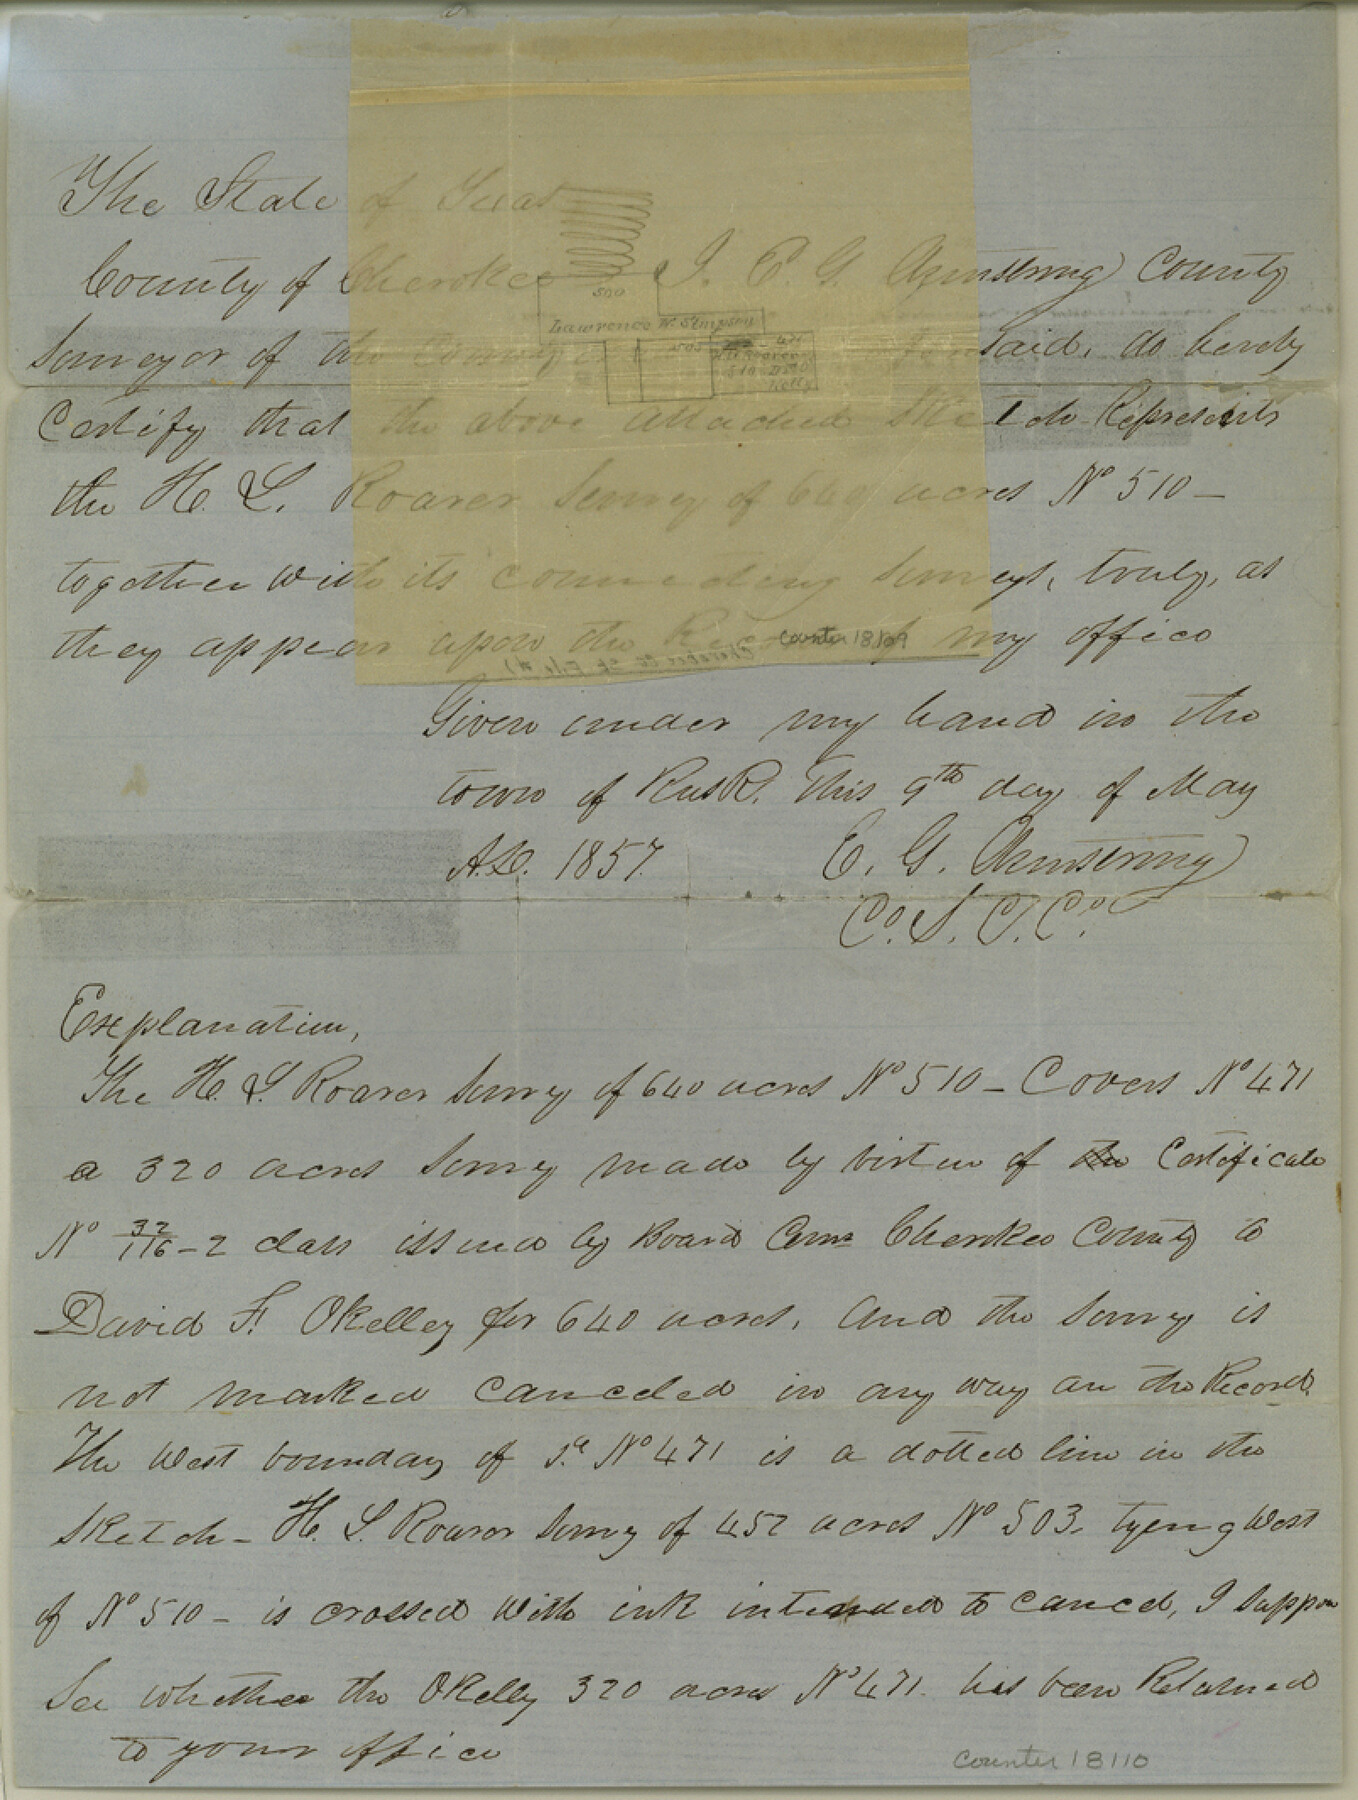 The State of Texas
County of Cherokee I. E. G. Armstrong County
Surveyor of the County aforesaid, do hereby
Certify that the above attached Sketch Represents
the H. L. Roarer Survey of 640 acres Nº 510 -
together with its connecting Surveys, truly, as
they appear upon the Records of my office
500
Lawrence W. Simpson
503
471
510
Kelly
counter 18109
Cherokee Co. Sk. File 4)
Given under my hand in the
town of Rusk. This 9th day of May
A.D. 1857. E. G. Armstrong
Co. S. C. Co.
Explanation,
The H. L Roarer Survey of 640 acres Nº 510 - Covers Nº 471
a 320 acres Survey made by virtue of the Certificate
Nº 32/116 - 2 class issued by Board Coms Cherokee County to
David F. OKelley for 640 acres. And the Survey is
not marked canceled in any way on the Record.
The West boundary of Sd. Nº 471 is a dotted line in the
Sketch - H. L. Roarer Survey of 452 acres Nº 503. tyeng West
of Nº 510 - is crossed with ink intended to cancel, I suppose
See whether the OKelly 320 acres Nº 471. has been Returned
to your office
counter 18110